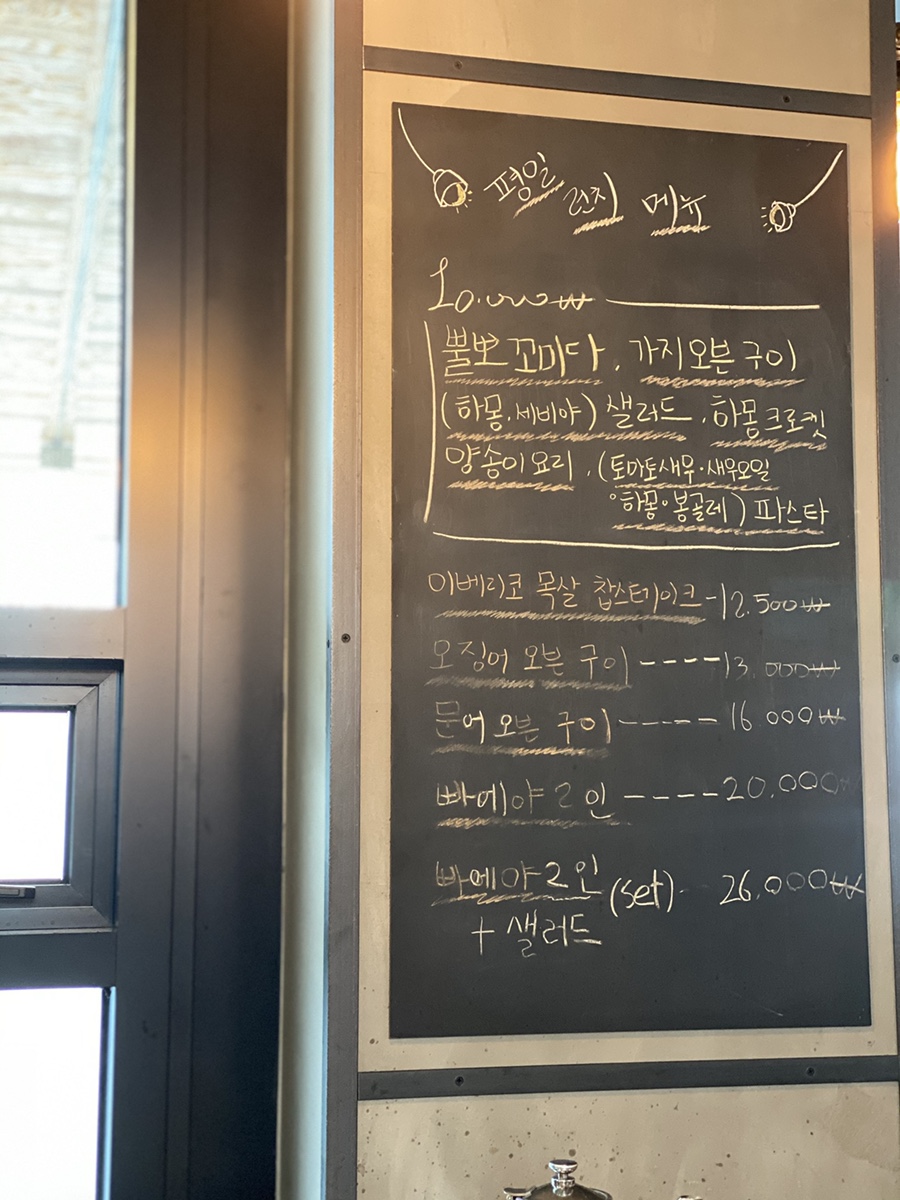 평일 런치 메뉴
10.000₩
뽈뽀 꼬미다, 가지오븐구이
(하몽,세비야) 샐러드, 하몽크로켓
양송이요리, (토마토새우·새우오일
·하몽·봉골레) 파스타
이베리코 목살 찹스테이크-12.500₩
오징어 오븐 구이----13.000₩
문어 오븐 구이-----16.000₩
빠에야 2인----20.000₩
빠에야 2인 (set) 26.000₩
+ 샐러드